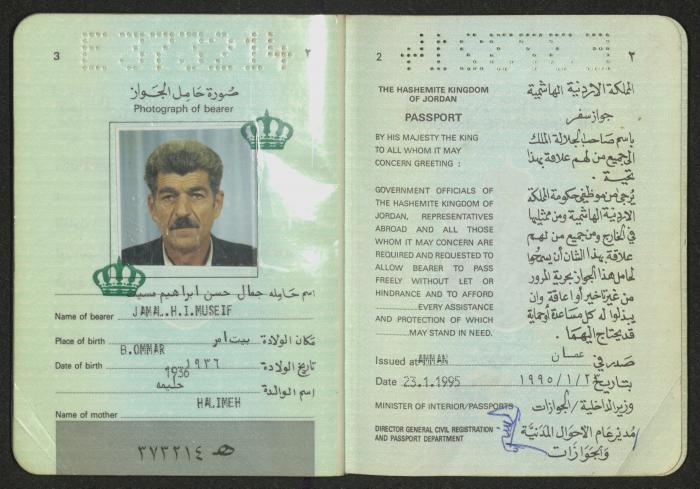 3
E 373214
٢
صورة حامل الجواز
Photograph of bearer
اسم حامله جمال حسن ابراهيم
Name of bearer JAMAL.H.I.MUSEIF
مكان الولادة بيت امر
Place of birth B.OMMAR
تاريخ الولادة ١٩٣٦
Date of birth 1936
اسم الوالدة حليمه
HALIMEH
Name of mother
هـ ٣٧٣٢١٤
2
٢
THE HASHEMITE KINGDOM
OF JORDAN
المملكة الاردنية الهاشمية
PASSPORT
جواز سفر
BY HIS MAJESTY THE KING
TO ALL WHOM IT MAY
CONCERN GREETING :
باسم صاحب الجلالة الملك
الى جميع من لهم علاقة بهذا
تحية .
GOVERNMENT OFFICIALS OF
THE HASHEMITE KINGDOM OF
JORDAN, REPRESENTATIVES
ABROAD AND ALL THOSE
WHOM IT MAY CONCERN ARE
REQUIRED AND REQUESTED TO
ALLOW BEARER TO PASS
FREELY WITHOUT LET OR
HINDRANCE AND TO AFFORD
............EVERY ASSISTANCE
AND PROTECTION OF WHICH
............MAY STAND IN NEED.
يرجى من موظفي حكومة المملكة
الاردنية الهاشمية ومن ممثليها
في الخارج ومن جميع من لهم
علاقة بهذا الشأن أن يسمحوا
لحامل هذا الجواز بحرية المرور
من غير تأخير أو اعاقة وان
يبذلوا له كل مساعدة أو حماية
قد يحتاج اليهما .
Issued at AMMAN
صدر في عمان
Date 23.1.1995
بتاريخ ١٩٩٥/١/٢٣
MINISTER OF INTERIOR/PASSPORTS
وزير الداخلية/الجوازات
DIRECTOR GENERAL CIVIL REGISTRATION
AND PASSPORT DEPARTMENT
مدير عام الأحوال المدنية
والجوازات